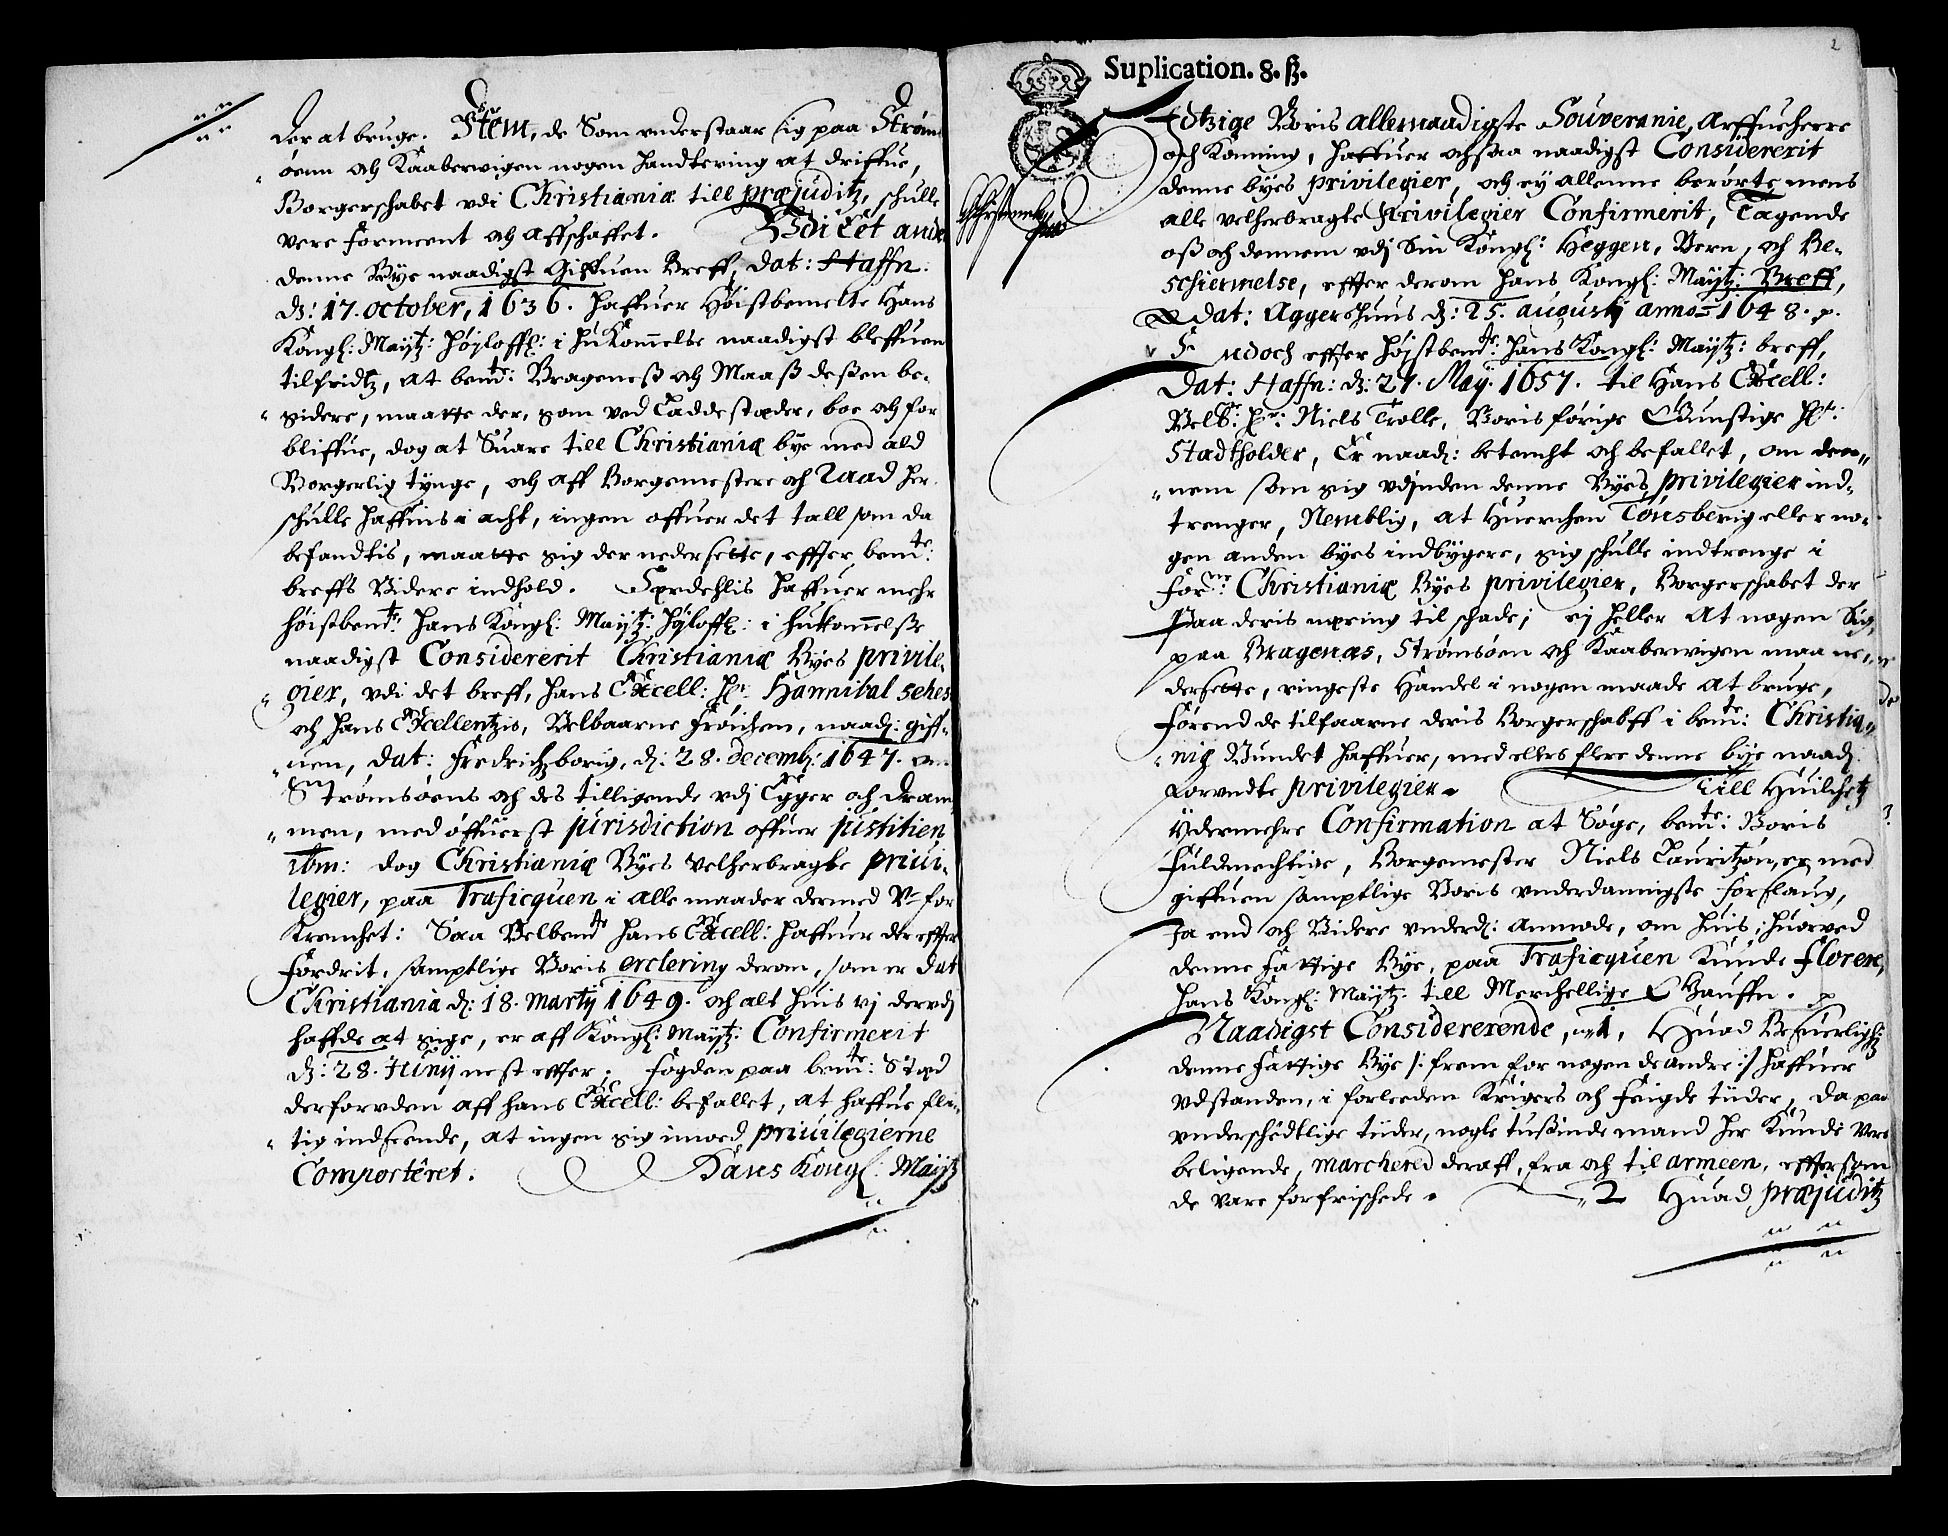 der at bruge. Item, de Som vnderstaar sig paa Strøm
øenn och Kaaberwigen nogen handtering at driffue,
Borgerschabet vdi Christiania till præjuditz, schulle
vere forment och affschaffet. Vdi Et andet
denne Bye naadigst Giffuen Breff, dat: Haffn:
dj: 17. october, 1636. haffuer Høistbemelte Hans
Kongl: Maytz: Høyloffl: i hukommelse naadigst bleffuen
tilfridtz, at bemte: Brageness och Maass dessen be-
sidere, maatte der, som ved Laddestæder, boe och for
bliffue, dog at Suare till Christianiæ bye med ald
Borgerlig tynge, och aff Borgemestere och Raad her
schulle haffuis i acht, ingen offuer det tall som da
befandtis, maatte sig der nedersette, effter bemte:
breffs Videre indhold. Sperdehlis haffuer mehr
høistbemte: Hans Kongl: Maytz: Høyloffl: i hukommelsse
naadigst Considererit Christianiæ Byes privile-
gier, vdi det breff, hans Excell: Hr. Hannibal Sehested
och hans Excellentzis, Velbaarne Frøichen, naadj: giff-
uen, dat: Fredrichsborig, dj: 28. decemb: 1647. om
Strømsøens och des tilligende vdj Egger och Dram
men, med øffuerst jurisdiction offuer justitien
ibm: dog Christianiæ Byes velherbragte priui-
legier, paa Traficquen i alle maader dermed V-for
Krenchet: Saa Velbemte hans Excell: haffuer der effter
fordrit, samptlige Voris erclering derom, som er dat
Christiania dj: 18. martij 1649. och alt huis vj dervdj
haffde at sige, er aff Kongl: Maytz: Confirmerit
dj: 28. Junij nest effter. Fogden paa bemte: Sted
derforvden aff hans Excell: befallet, at haffue flit-
tig indseende, at ingen sig imod privilegierne
Comportéret. Hans Kongl: Maytz
2
Suplication. 8. ß.
Itzige Voris allernaadigste Souveranie, Arffueherre
och Konning, haffuer ochsaa naadigst Considererit
denne byes privilegier, och ey allenne berørte mens
alle velherbragte Privilegier Confirmerit, Tagende
oss och dennem vdj Sin Kongl: Heggen, Vern, och Be-
schiermelse, effter derom hans Kongl: Maytz: Breff,
dat: Aggershuus dj: 25. augustij anno 1648. p.
Endoch effter høistbemte: Hans Kongl: Maytz: breff,
Dat: Haffn: dj: 27. May. 1657. til Hans Excell:
Velb: Hr: Niels Trolle, Voris forige Gunstige Hr:
Stadtholder, Er naadj: betencht och befallet, om den-
nem som sig vdjnden denne Byes privilegier ind-
trenger, Nemblig, at Huerchen Tønsberig eller no-
gen anden byes indbygere, sig schulle indtrenge i
forne: Christianiæ Byes privilegier, Borgerschabet der
paa deris nering til schade; ej heller At nogen Sig,
paa Bragenæs, Strømsøen och Kaaberwigen maa ne-
dersette, ringeste Handel i nogen maade at bruge,
førend de tilfaarne deris Borgerschabff i bemte: Christia-
nia Vundet haffuer, med elters flere denne bye naadj.
forvndte privilegier. Till Huilchetz
ydermehre Confirmation at Søge, bemte: Voris
Fuldmechtige, Borgemester Niels Lauritzøn, er med
giffuen samptlige Voris vnderdannigste forslaug,
Ja end och Videre vnderdj: Anmode, om huis, huorved
denne fattige Bye, paa Traficquen kunde florere,
hans Kongl: Maytz: till Merchellige Gauffn. p
Naadigst Considererende, 1, Huad Besuerlighz
denne fattige Bye /: frem for nogen de andre :/ haffuer
vdstanden, i forleeden Krigers och Feigde tiider, da paa
vnderschedtlige tiider, nogle tussinde mand her kunde Vere
beligende, marchered deraff, fra och til armeen, effter som
de vare forfrischede. 2 Huad præjuditz